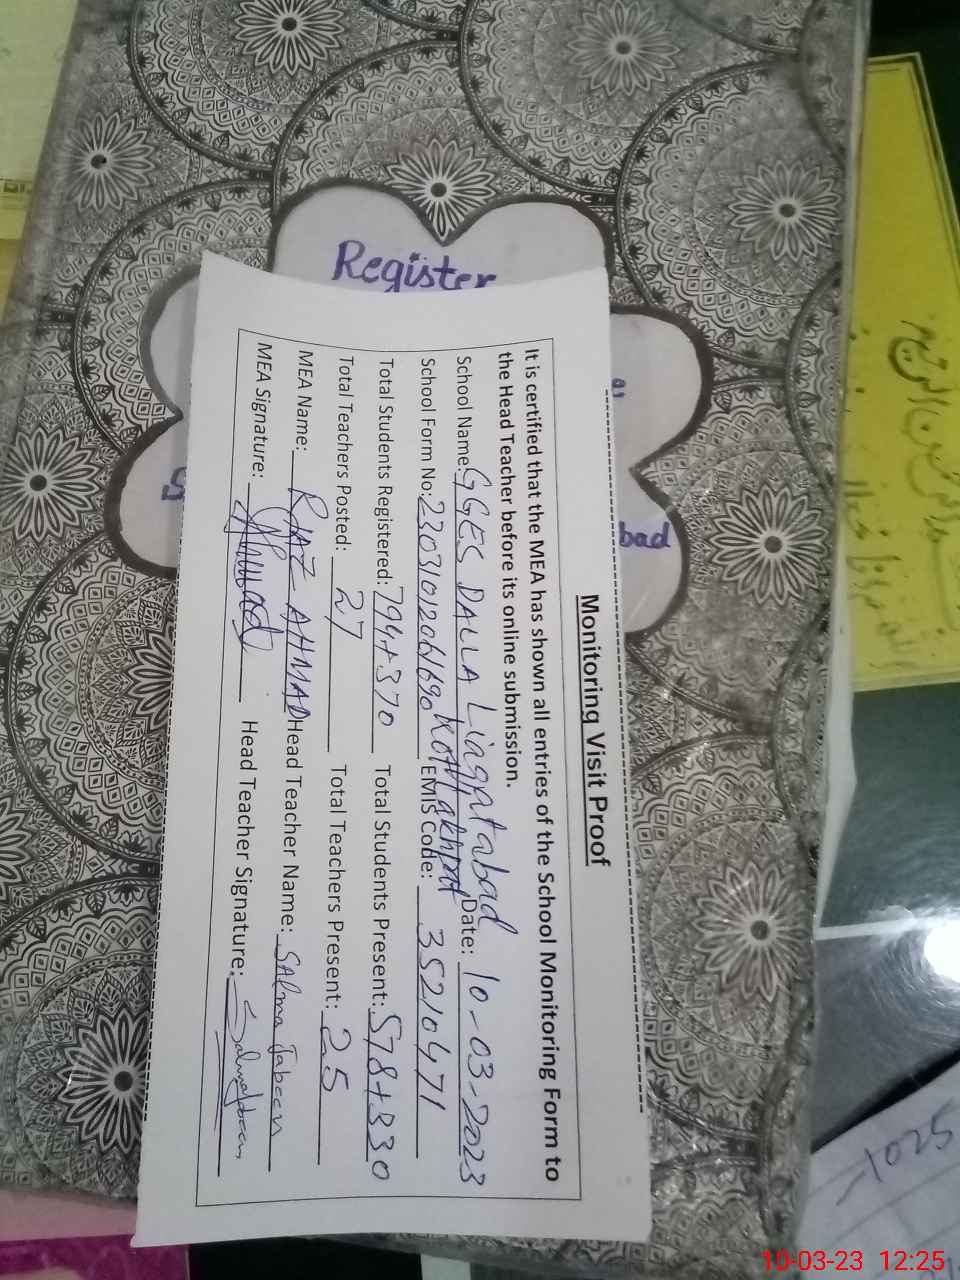 Register
bad
Monitoring Visit Proof
It is certified that the MEA has shown all entries of the School Monitoring Form to
the Head Teacher before its online submission.
School Name: GGES DALLA Liaqatabad Date: 10-03-2023
Kotlakhpat
School Form No: EMIS Code: 35210471
Total Students Registered: 794+370 Total Students Present: 578+330
Total Teachers Posted: 27 Total Teachers Present: 25
MEA Name: RIAZ AHMAD Head Teacher Name: SAlma Jabeen
MEA Signature: Head Teacher Signature: Salmajabeen
1025
10-03-23 12:25